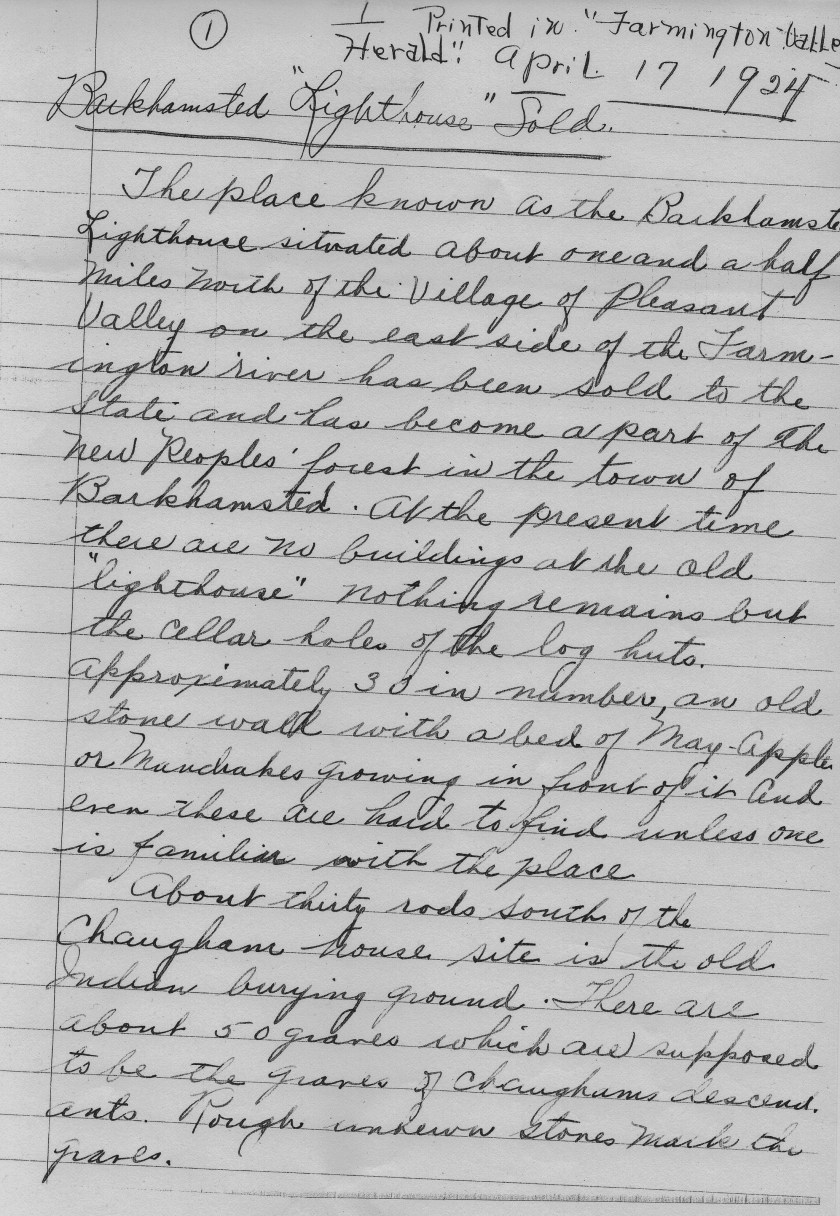 1
1 Printed in "Farmington Valley
Herald". April 17 1924
Barkhamsted "Lighthouse" Sold.
The place known as the Barkhamste
Lighthouse situated about one and a half
miles north of the Village of Pleasant
Valley on the east side of the Farm-
ington river has been sold to the
State and has become a part of the
new Peoples' forest in the town of
Barkhamsted. At the present time
there are no buildings at the old
"lighthouse" nothing remains but
the cellar holes of the log huts.
approximately 30 in number, an old
stone wall with a bed of May-Apple
or Mandrakes growing in front of it and
even these are hard to find unless one
is familiar with the place
About thirty rods south of the
Chaugham house site is the old
Indian burying ground. There are
about 50 graves which are supposed
to be the graves of Chaughams descend-
ants. Rough unhewn stones mark the
graves.